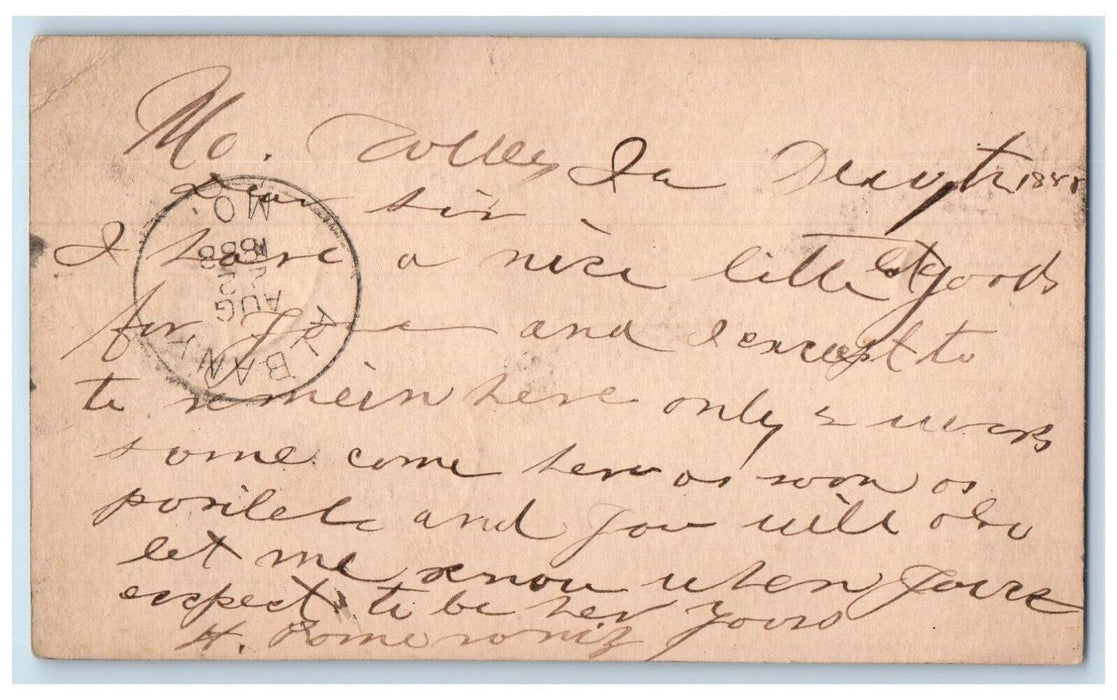 Mo. Valley Ia 1888
Dear Sir
I have a nice little lot goods
for you and I except to
to remein here only 2 weeks
some come here as soon as
posilele and you will also
let me know when youre
expect to be her yours
H.
ALBANY
AUG
25
1888
MO.